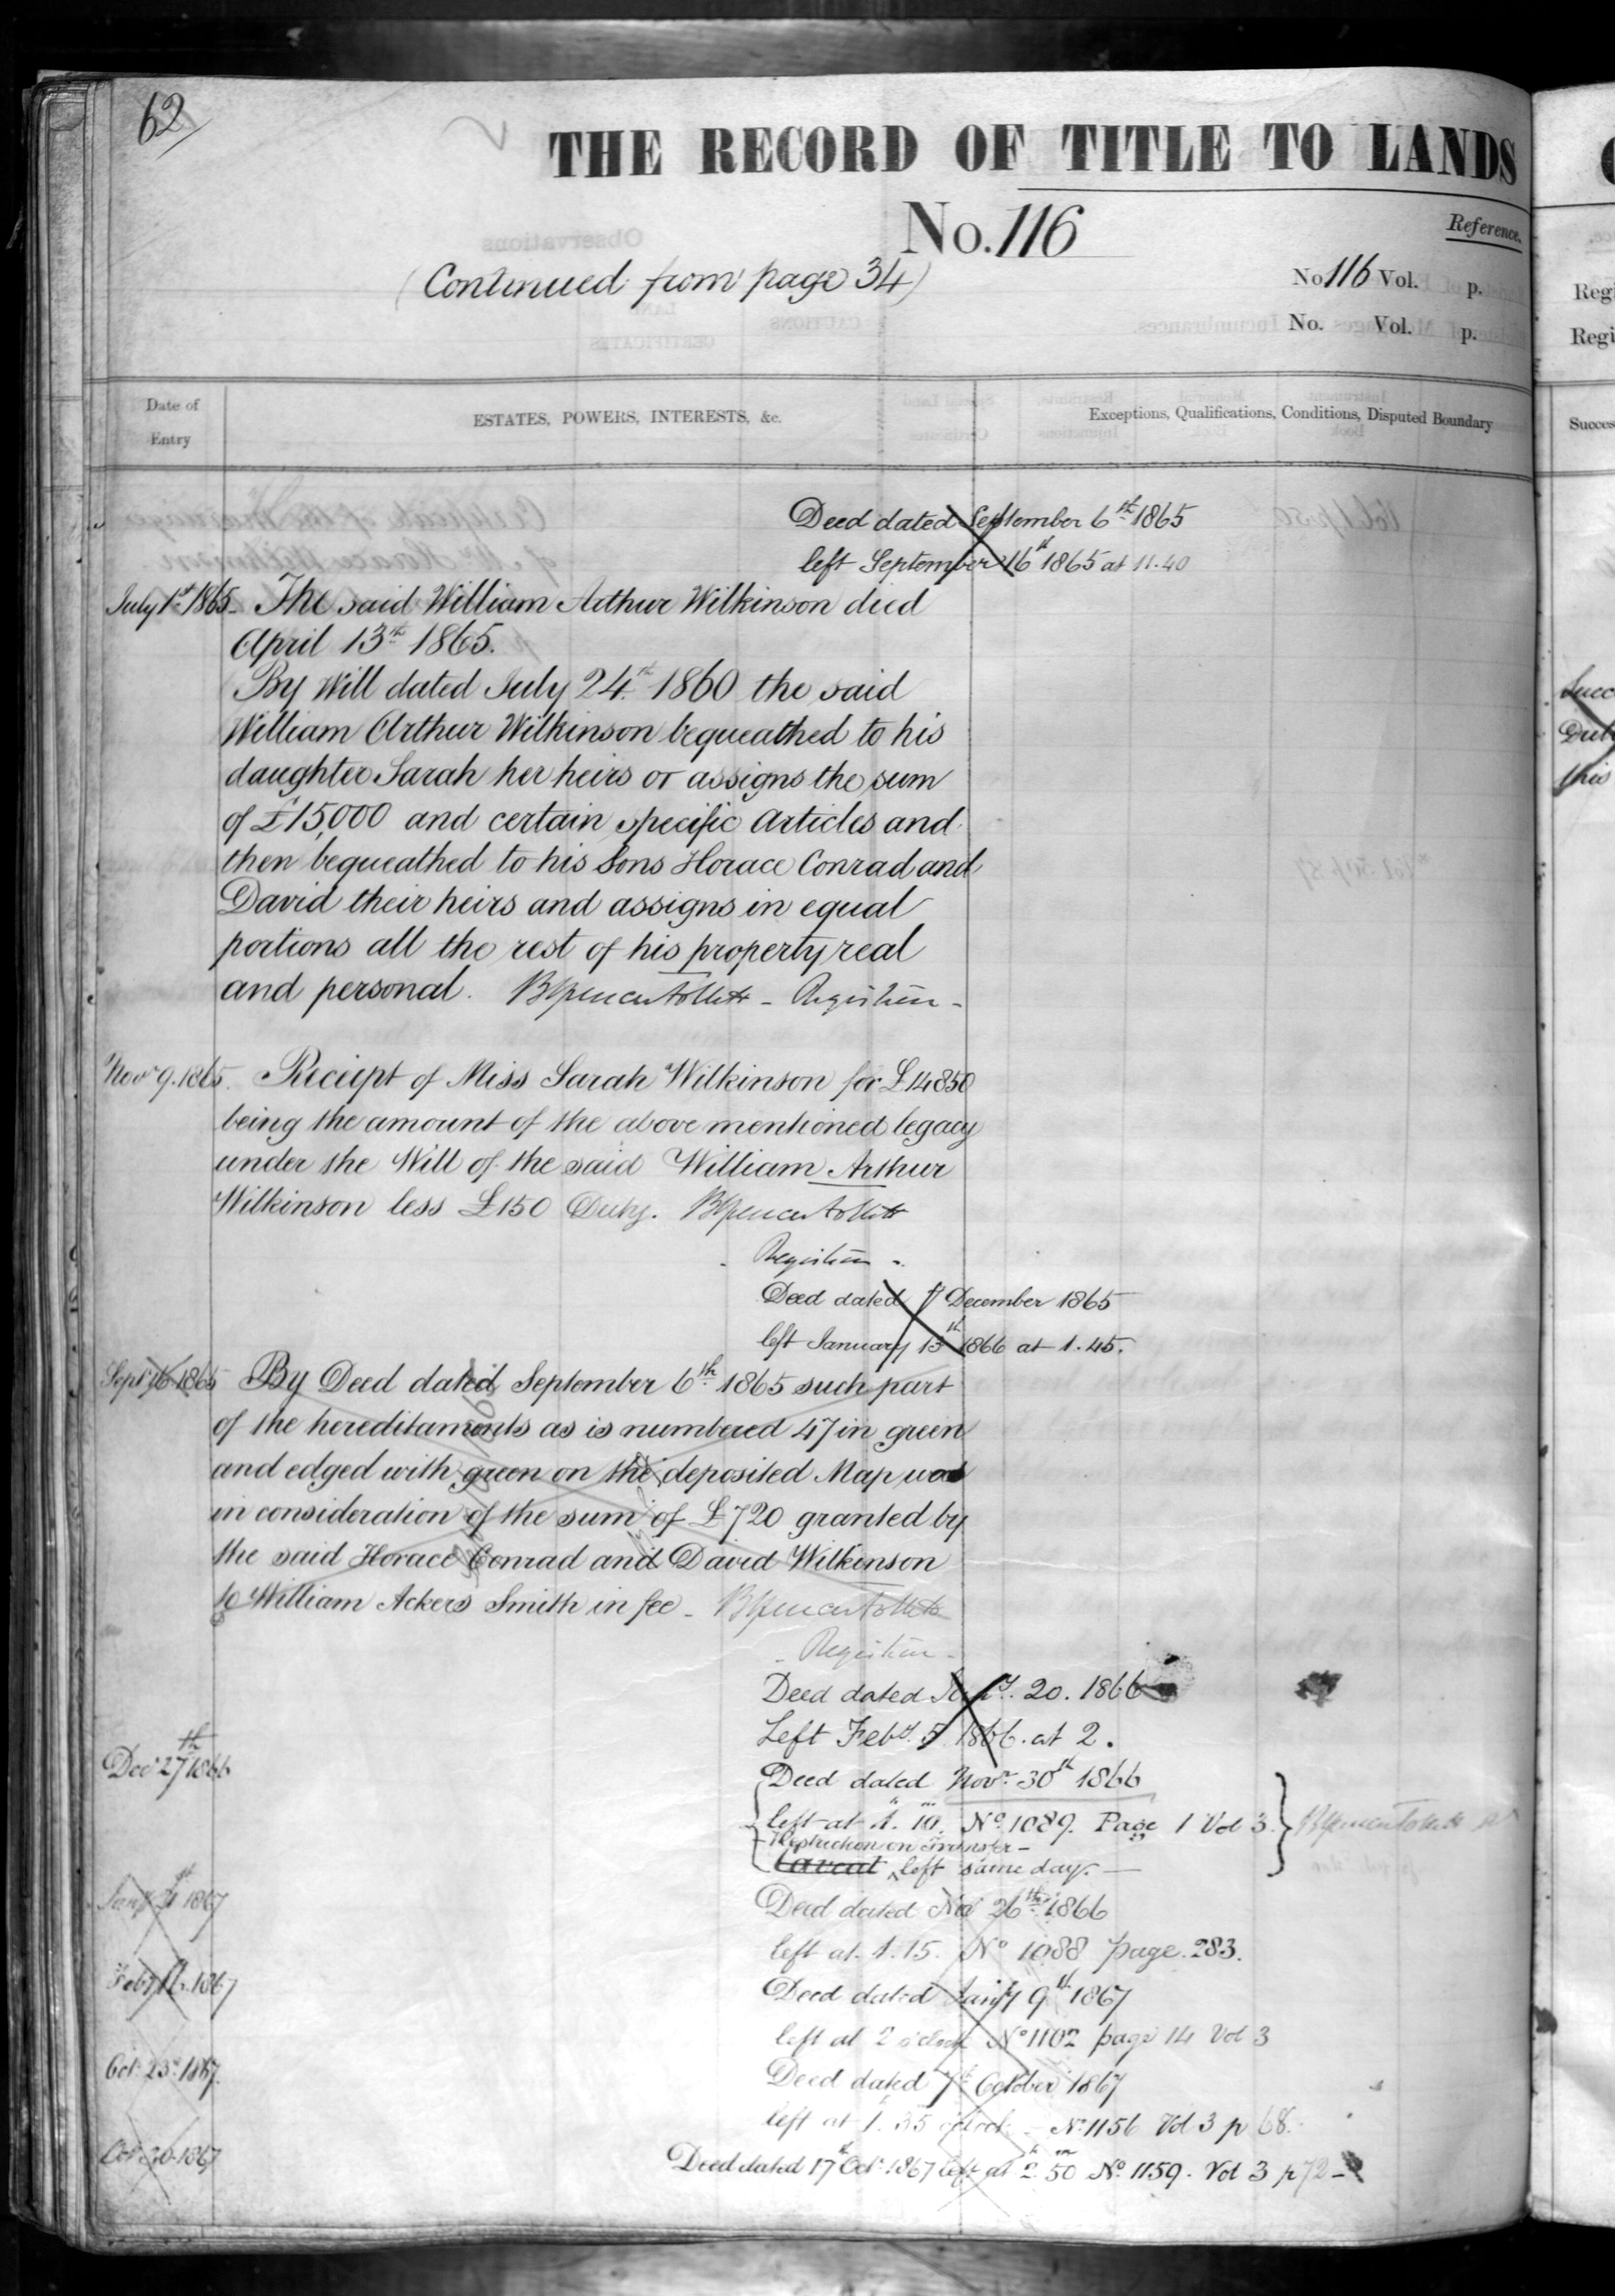 62
THE RECORD OF TITLE TO LANDS
No. 116
Reference.
(Continued from page 34)
No 116 Vol. p.
No. Vol. p.
Regi
Regi
Date of
Entry
ESTATES, POWERS, INTERESTS, &c.
Exceptions, Qualifications, Conditions, Disputed Boundary
Succes
Deed dated September 6th 1865
left September 16th 1865 at 11.40
July 1st 1865. The said William Arthur Wilkinson died
April 13th 1865.
By Will dated July 24th 1860 the said
William Arthur Wilkinson bequeathed to his
daughter Sarah her heirs or assigns the sum
of £15,000 and certain specific articles and
then bequeathed to his Sons Horace Conrad and
David their heirs and assigns in equal
portions all the rest of his property real
and personal. Registrar
Succ
this
Novr 9. 1865. Receipt of Miss Sarah Wilkinson for £14850
being the amount of the above mentioned legacy
under the Will of the said William Arthur
Wilkinson less £150 Duty.
Registrar
Deed dated December 1865
left January 13th 1866 at 1.45.
Sept 16 1865 By Deed dated September 6th 1865 such part
of the hereditaments as is numbered 47 in green
and edged with green on the deposited Map was
in consideration of the sum of £720 granted by
the said Horace Conrad and David Wilkinson
to William Ackers Smith in fee
Registrar
Deed dated 20. 1866
Left Feby. 5 1866. at 2.
Decr 27th 1866
Deed dated Novr 30th 1866
left at 1. 10. No 1089. Page 1 Vol 3
Restriction on Transfer
Caveat left same day.
1867
Deed dated 26th 1866
left at 1.15. No 1088 page. 283.
Feby 1867
Deed dated Jany 9th 1867
left at 2 o'clock No 1102 page 14 Vol 3
Oct 23d 1867.
Deed dated 7th October 1867
left at 1. 35 o'clock No 1156 Vol 3 p 68.
Oct 30 1867
Deed dated 17th Oct 1867 left at 2h 50m No 1159. Vol 3 p 72